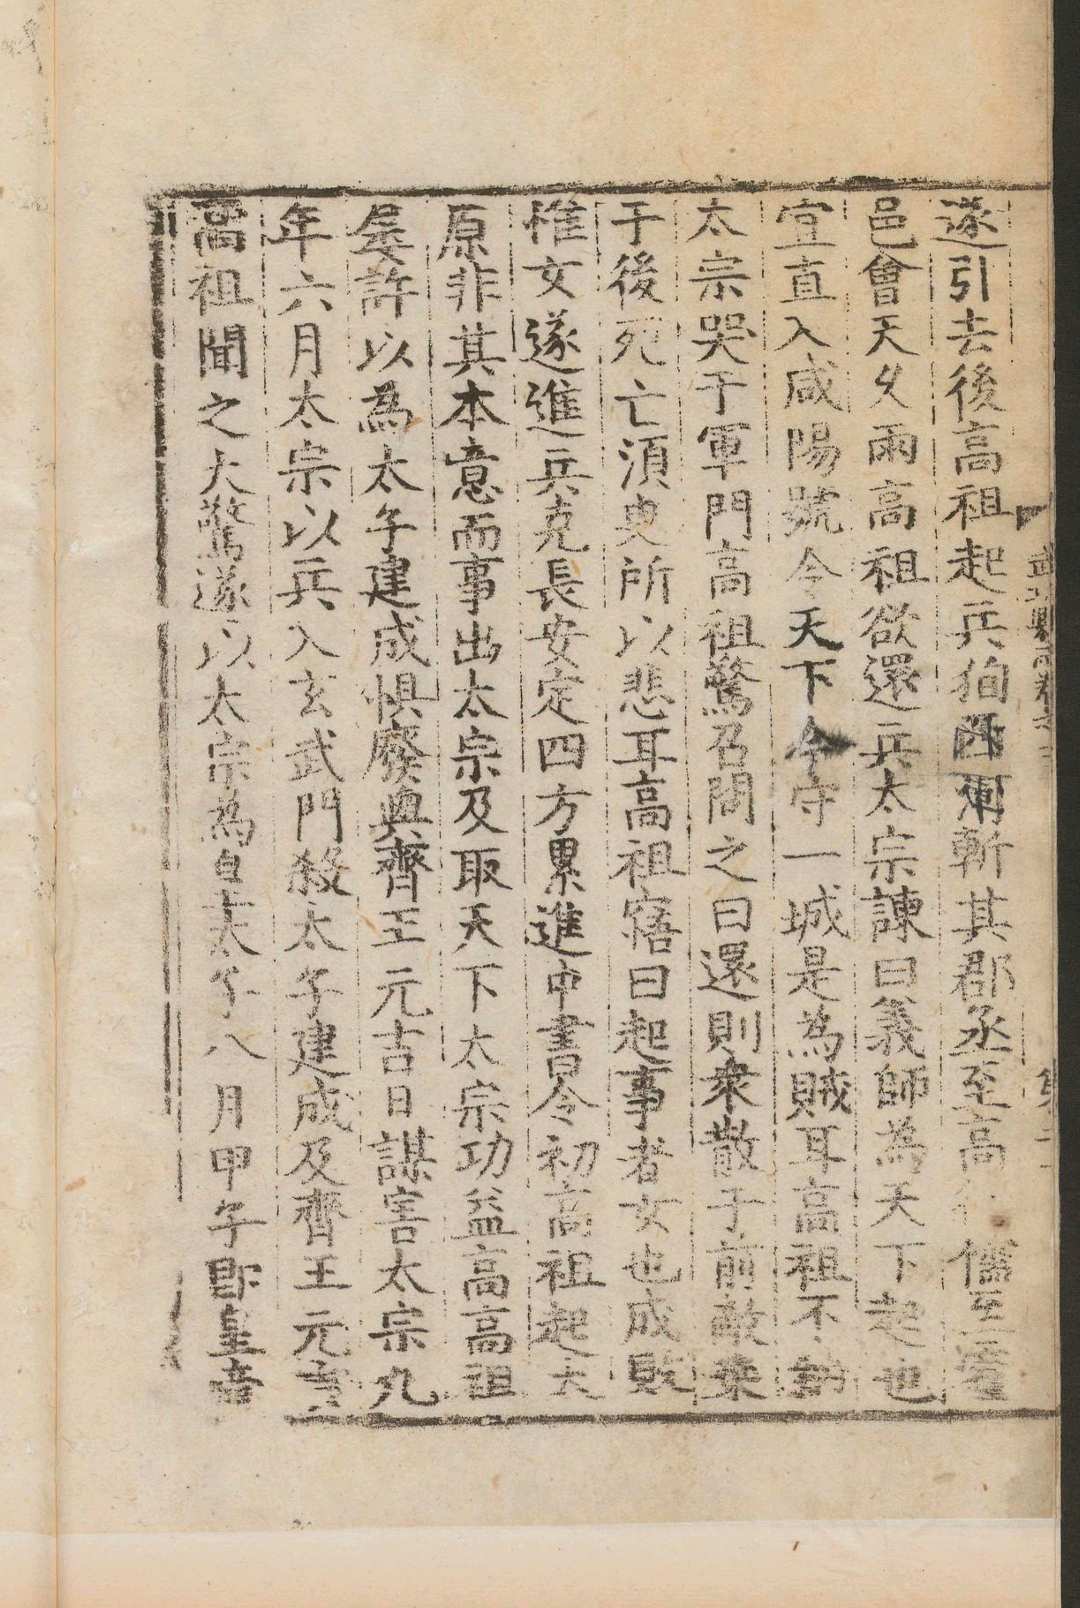 遂引去後高祖起兵徇西河斬其郡丞至高德儒至霍
邑會天久雨高祖欲還兵太宗諫曰義師為天下起也
宜直入咸陽號令天下今守一城是為賊耳高祖不納
太宗哭于軍門高祖驚召問之曰還則衆散于前敵乗
于後死亡須臾所以悲耳高祖寤曰起事者女也成敗
惟女遂進兵克長安定四方累進中書令初高祖起太
原非其本意而事出太宗及取天下太宗功益高高祖
屡許以為太子建成惧廢與齊王元吉日謀害太宗九
年六月太宗以兵入玄武門殺太子建成及齊王元吉
高祖聞之大驚遂以太宗為皇太子八月甲午即皇帝